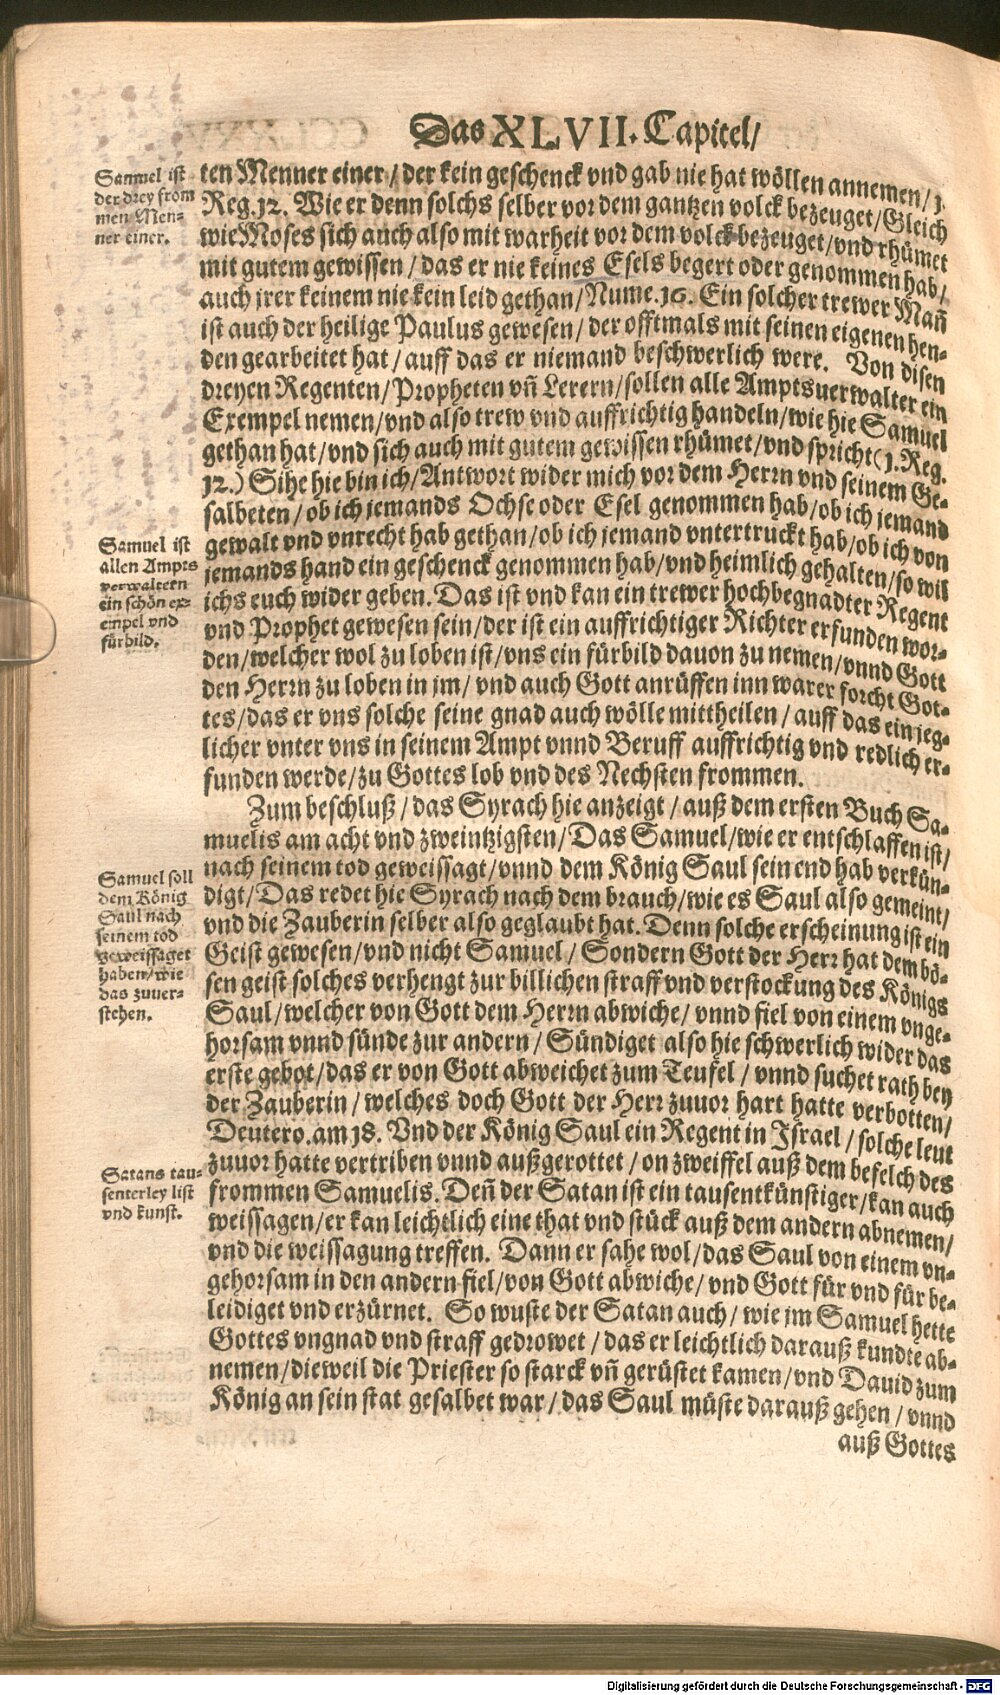 Das XLVII. Capitel/
Samuel ist
der drey from
men Men-
ner einer.
ten Menner einer/ der kein geschenck vnd gab nie hat wöllen annemen/ 1.
Reg.12. Wie er denn solchs selber vor dem gantzen volck bezeuget/ Gleich
wie Moses sich auch also mit warheit vor dem volck bezeuget/ vnd rhümet
mit gutem gewissen/ das er nie keines Esels begert oder genommen hab/
auch jrer keinem nie kein leid gethan/ Nume.16. Ein solcher trewer Mañ
ist auch der heilige Paulus gewesen/ der offtmals mit seinen eigenen hen-
den gearbeitet hat/ auff das er niemand beschwerlich were. Von disen
dreyen Regenten/ Propheten vñ Lerern/ sollen alle Amptsuerwalter ein
Exempel nemen/ vnd also trew vnd auffrichtig handeln/ wie hie Samuel
gethan hat/ vnd sich auch mit gutem gewissen rhümet/ vnd spricht (1. Reg.
12.) Sihe hie bin ich/ Antwort wider mich vor dem Herrn vnd seinem Ge-
salbeten/ ob ich jemands Ochse oder Esel genommen hab/ ob ich jemand
Samuel ist
allen Ampts
verwaltern
ein schön ex-
empel vnd
fürbild.
gewalt vnd vnrecht hab gethan/ ob ich jemand vntertruckt hab/ ob ich von
jemands hand ein geschenck genommen hab/ vnd heimlich gehalten/ so wil
ichs euch wider geben. Das ist vnd kan ein trewer hochbegnadter Regent
vnd Prophet gewesen sein/ der ist ein auffrichtiger Richter erfunden wor-
den/ welcher wol zu loben ist/ vns ein fürbild dauon zu nemen/ vnnd Gott
den Herrn zu loben in jm/ vnd auch Gott anrüffen inn warer forcht Got-
tes/ das er vns solche seine gnad auch wölle mittheilen/ auff das ein jeg-
licher vnter vns in seinem Ampt vnnd Beruff auffrichtig vnd redlich er-
funden werde/ zu Gottes lob vnd des Nechsten frommen.
Zum beschluß/ das Syrach hie anzeigt/ auß dem ersten Buch Sa-
muelis am acht vnd zweintzigsten/ Das Samuel/ wie er entschlaffen ist/
Samuel soll
dem König
Saul nach
seinem tod
geweissaget
haben/ wie
das zuuer-
stehen.
nach seinem tod geweissagt/ vnnd dem König Saul sein end hab verkün-
digt/ Das redet hie Syrach nach dem brauch/ wie es Saul also gemeint/
vnd die Zauberin selber also geglaubt hat. Denn solche erscheinung ist ein
Geist gewesen/ vnd nicht Samuel/ Sondern Gott der Herr hat dem bö-
sen geist solches verhengt zur billichen straff vnd verstockung des Königs
Saul/ welcher von Gott dem Herrn abwiche/ vnnd fiel von einem vnge-
horsam vnnd sünde zur andern/ Sündiget also hie schwerlich wider das
erste gebot/ das er von Gott abweichet zum Teufel/ vnnd suchet rath bey
der Zauberin/ welches doch Gott der Herr zuuor hart hatte verbotten/
Deutero.am 18. Vnd der König Saul ein Regent in Israel/ solche leut
Satans tau-
senterley list
vnd kunst.
zuuor hatte vertriben vnnd außgerottet/ on zweiffel auß dem befelch des
frommen Samuelis. Deñ der Satan ist ein tausentkünstiger/ kan auch
weissagen/ er kan leichtlich eine that vnd stück auß dem andern abnemen/
vnd die weissagung treffen. Dann er sahe wol/ das Saul von einem vn-
gehorsam in den andern fiel/ von Gott abwiche/ vnd Gott für vnd für be-
leidiget vnd erzürnet. So wuste der Satan auch/ wie jm Samuel hette
Gottes vngnad vnd straff gedrowet/ das er leichtlich darauß kundte ab-
nemen/ dieweil die Priester so starck vñ gerüstet kamen/ vnd Dauid zum
König an sein stat gesalbet war/ das Saul müste darauß gehen/ vnnd
auß Gottes
Digitalisierung gefördert durch die Deutsche Forschungsgemeinschaft - DFG